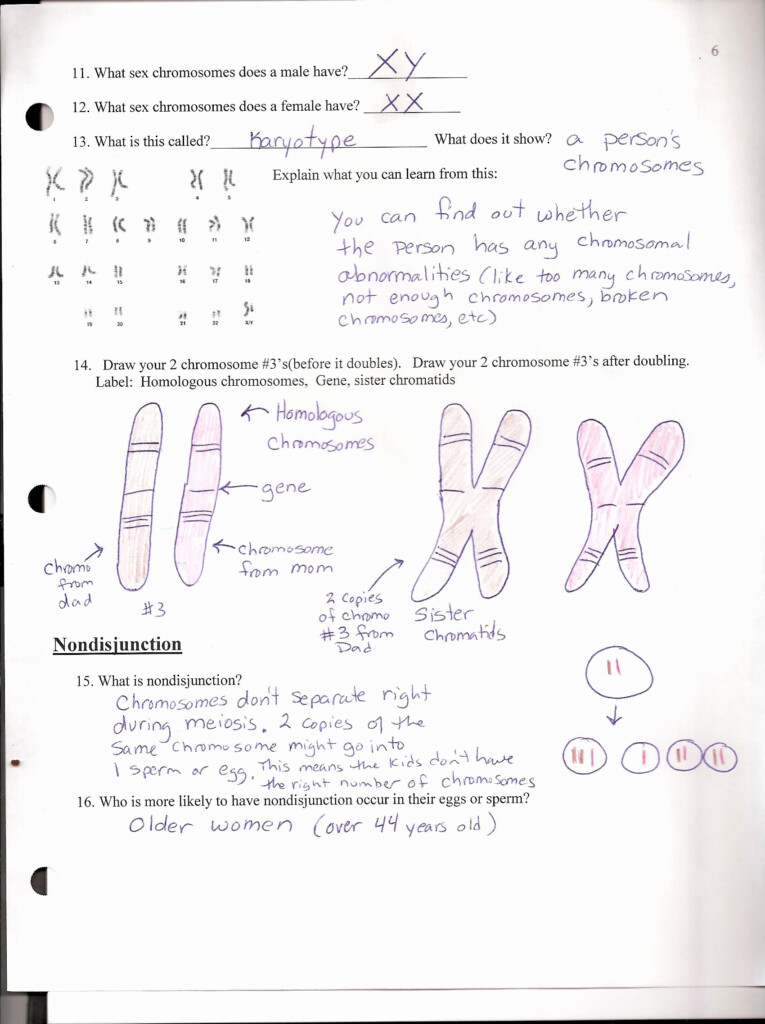 6
11. What sex chromosomes does a male have? XY
12. What sex chromosomes does a female have? XX
13. What is this called? Karyotype What does it show? a person's
chromosomes
Explain what you can learn from this:
1 2 3 4 5
6 7 8 9 10 11 12
13 14 15 16 17 18
19 20 21 22 X/Y
You can find out whether
the person has any chromosomal
abnormalities (like too many chromosomes,
not enough chromosomes, broken
chromosomes, etc)
14. Draw your 2 chromosome #3's(before it doubles). Draw your 2 chromosome #3's after doubling.
Label: Homologous chromosomes, Gene, sister chromatids
Homologous
Chromosomes
gene
chromosome
from mom
Chromo
from
dad
#3
2 copies
of chromo
#3 from
Dad
Sister
Chromatids
Nondisjunction
15. What is nondisjunction?
Chromosomes don't separate right
during meiosis. 2 copies of the
same chromosome might go into
1 sperm or egg. This means the kids don't have
the right number of chromosomes
16. Who is more likely to have nondisjunction occur in their eggs or sperm?
Older women (over 44 years old)